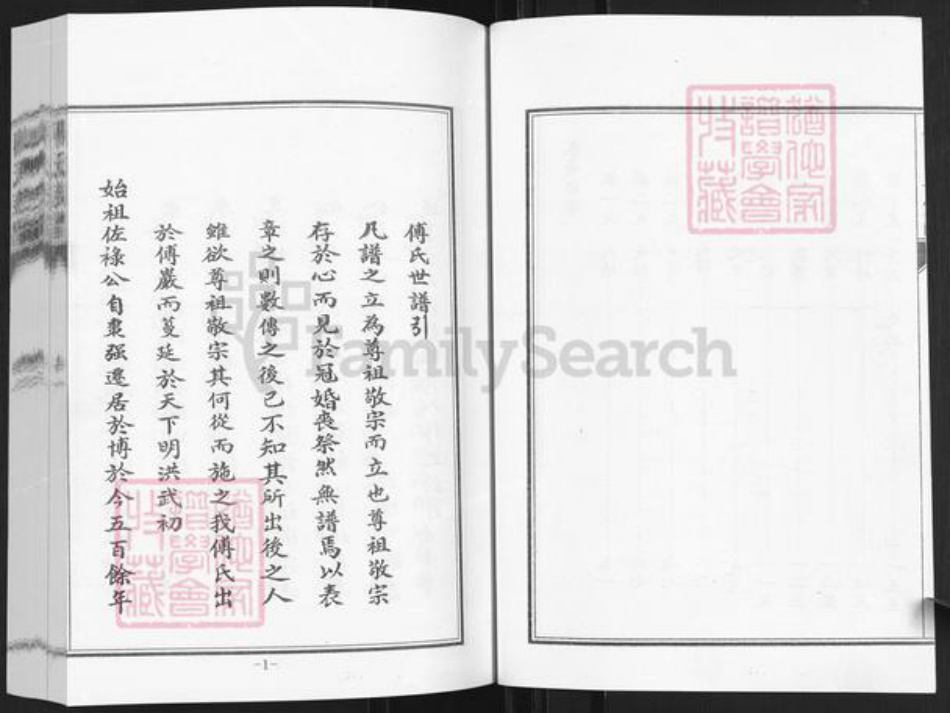 傅氏世譜引
凡譜之立為尊祖敬宗而立也尊祖敬宗
存於心而見於冠婚喪祭然無譜焉以表
章之則數傳之後已不知其所出後之人
雖欲尊祖敬宗其何從而施之我傅氏出
於傅巖而蔓延於天下明洪武初
始祖佐祿公自棗强遷居於博於今五百餘年
-1-
猶他家
譜學會
收藏
猶他家
譜學會
收藏
FamilySearch